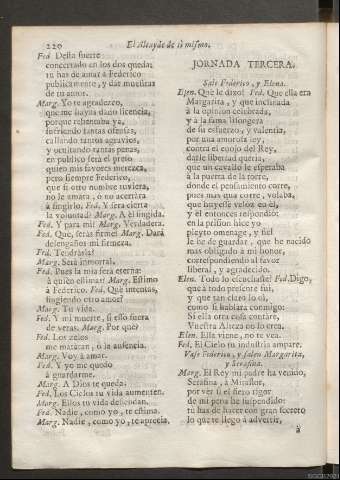 220
El Alcayde de si mismo.
Fed. Desta suerte
concertado en los dos queda:
tu has de amar à Federico
publicamente, y dar muestras
de tu amor.
Marg. Yo te agradezco,
que me hayas dado licencia,
porque rebentaba ya,
sufriendo tantas ofensas,
callando tantos agravios,
y ocultando tantas penas,
en publico serà el preso
quien mis favores merezca;
pero siempre Federico,
que si otro nombre tuviera,
no le amàra, ò no acertàra
à fingirlo. Fed. Y serà cierta
la voluntad? Marg. A èl fingida.
Fed. Y para mi? Marg. Verdadera.
Fed. Què, seràs firme? Marg. Darà
desengaños mi firmeza.
Fed. Tendràsla?
Marg. Serà inmortal.
Fed. Pues la mia serà eterna:
à quièn estimas? Marg. Estimo
à Federico. Fed. Què intentas,
fingiendo otro amor?
Marg. Tu vida.
Fed. Y mi muerte, si esso fuera
de veras. Marg. Por què?
Fed. Los zelos
me mataràn, ò la ausencia.
Marg. Voy à amar.
Fed. Y yo me quedo
à guardarme.
Marg. A Dios te queda.
Fed. Los Cielos tu vida aumenten.
Marg. Ellos tu vida defiendan.
Fed. Nadie, como yo, te estima.
Marg. Nadie, como yo, te aprecia.
JORNADA TERCERA.
Salen Federico, y Elena.
Elen. Què le dixo? Fed. Que ella era
Margarita, y que inclinada
à la opinion celebrada,
y à la fama lisongera
de su esfuerzo, y valentia,
por una amorosa ley,
contra el enojo del Rey,
darle libertad queria,
que un cavallo le esperaba
à la puerta de la torre,
donde el pensamiento corre,
pues mas que corre, volaba,
que huyesse veloz en èl,
y èl entonces respondiò:
en la prision hice yo
pleyto omenage, y fiel
le he de guardar, que he nacido
mas obligado à mi honor,
correspondiendo al favor
liberal, y agradecido.
Elen. Todo lo escuchaste? Fed. Digo,
que à todo presente fui,
y que tan claro lo oì,
como si hablàra conmigo:
Si ella otra cosa contàre,
Vuestra Alteza no lo crea.
Elen. Ella viene, no te vea.
Fed. El Cielo tu industria ampare.
Vase Federico, y salen Margarita,
y Serafina.
Marg. El Rey mi padre ha venido,
Serafina, à Miraflor,
por vèr si el fiero rigor
de mi pena he suspendido:
tù has de hacer con gran secreto
lo que te llego à advertir,
à